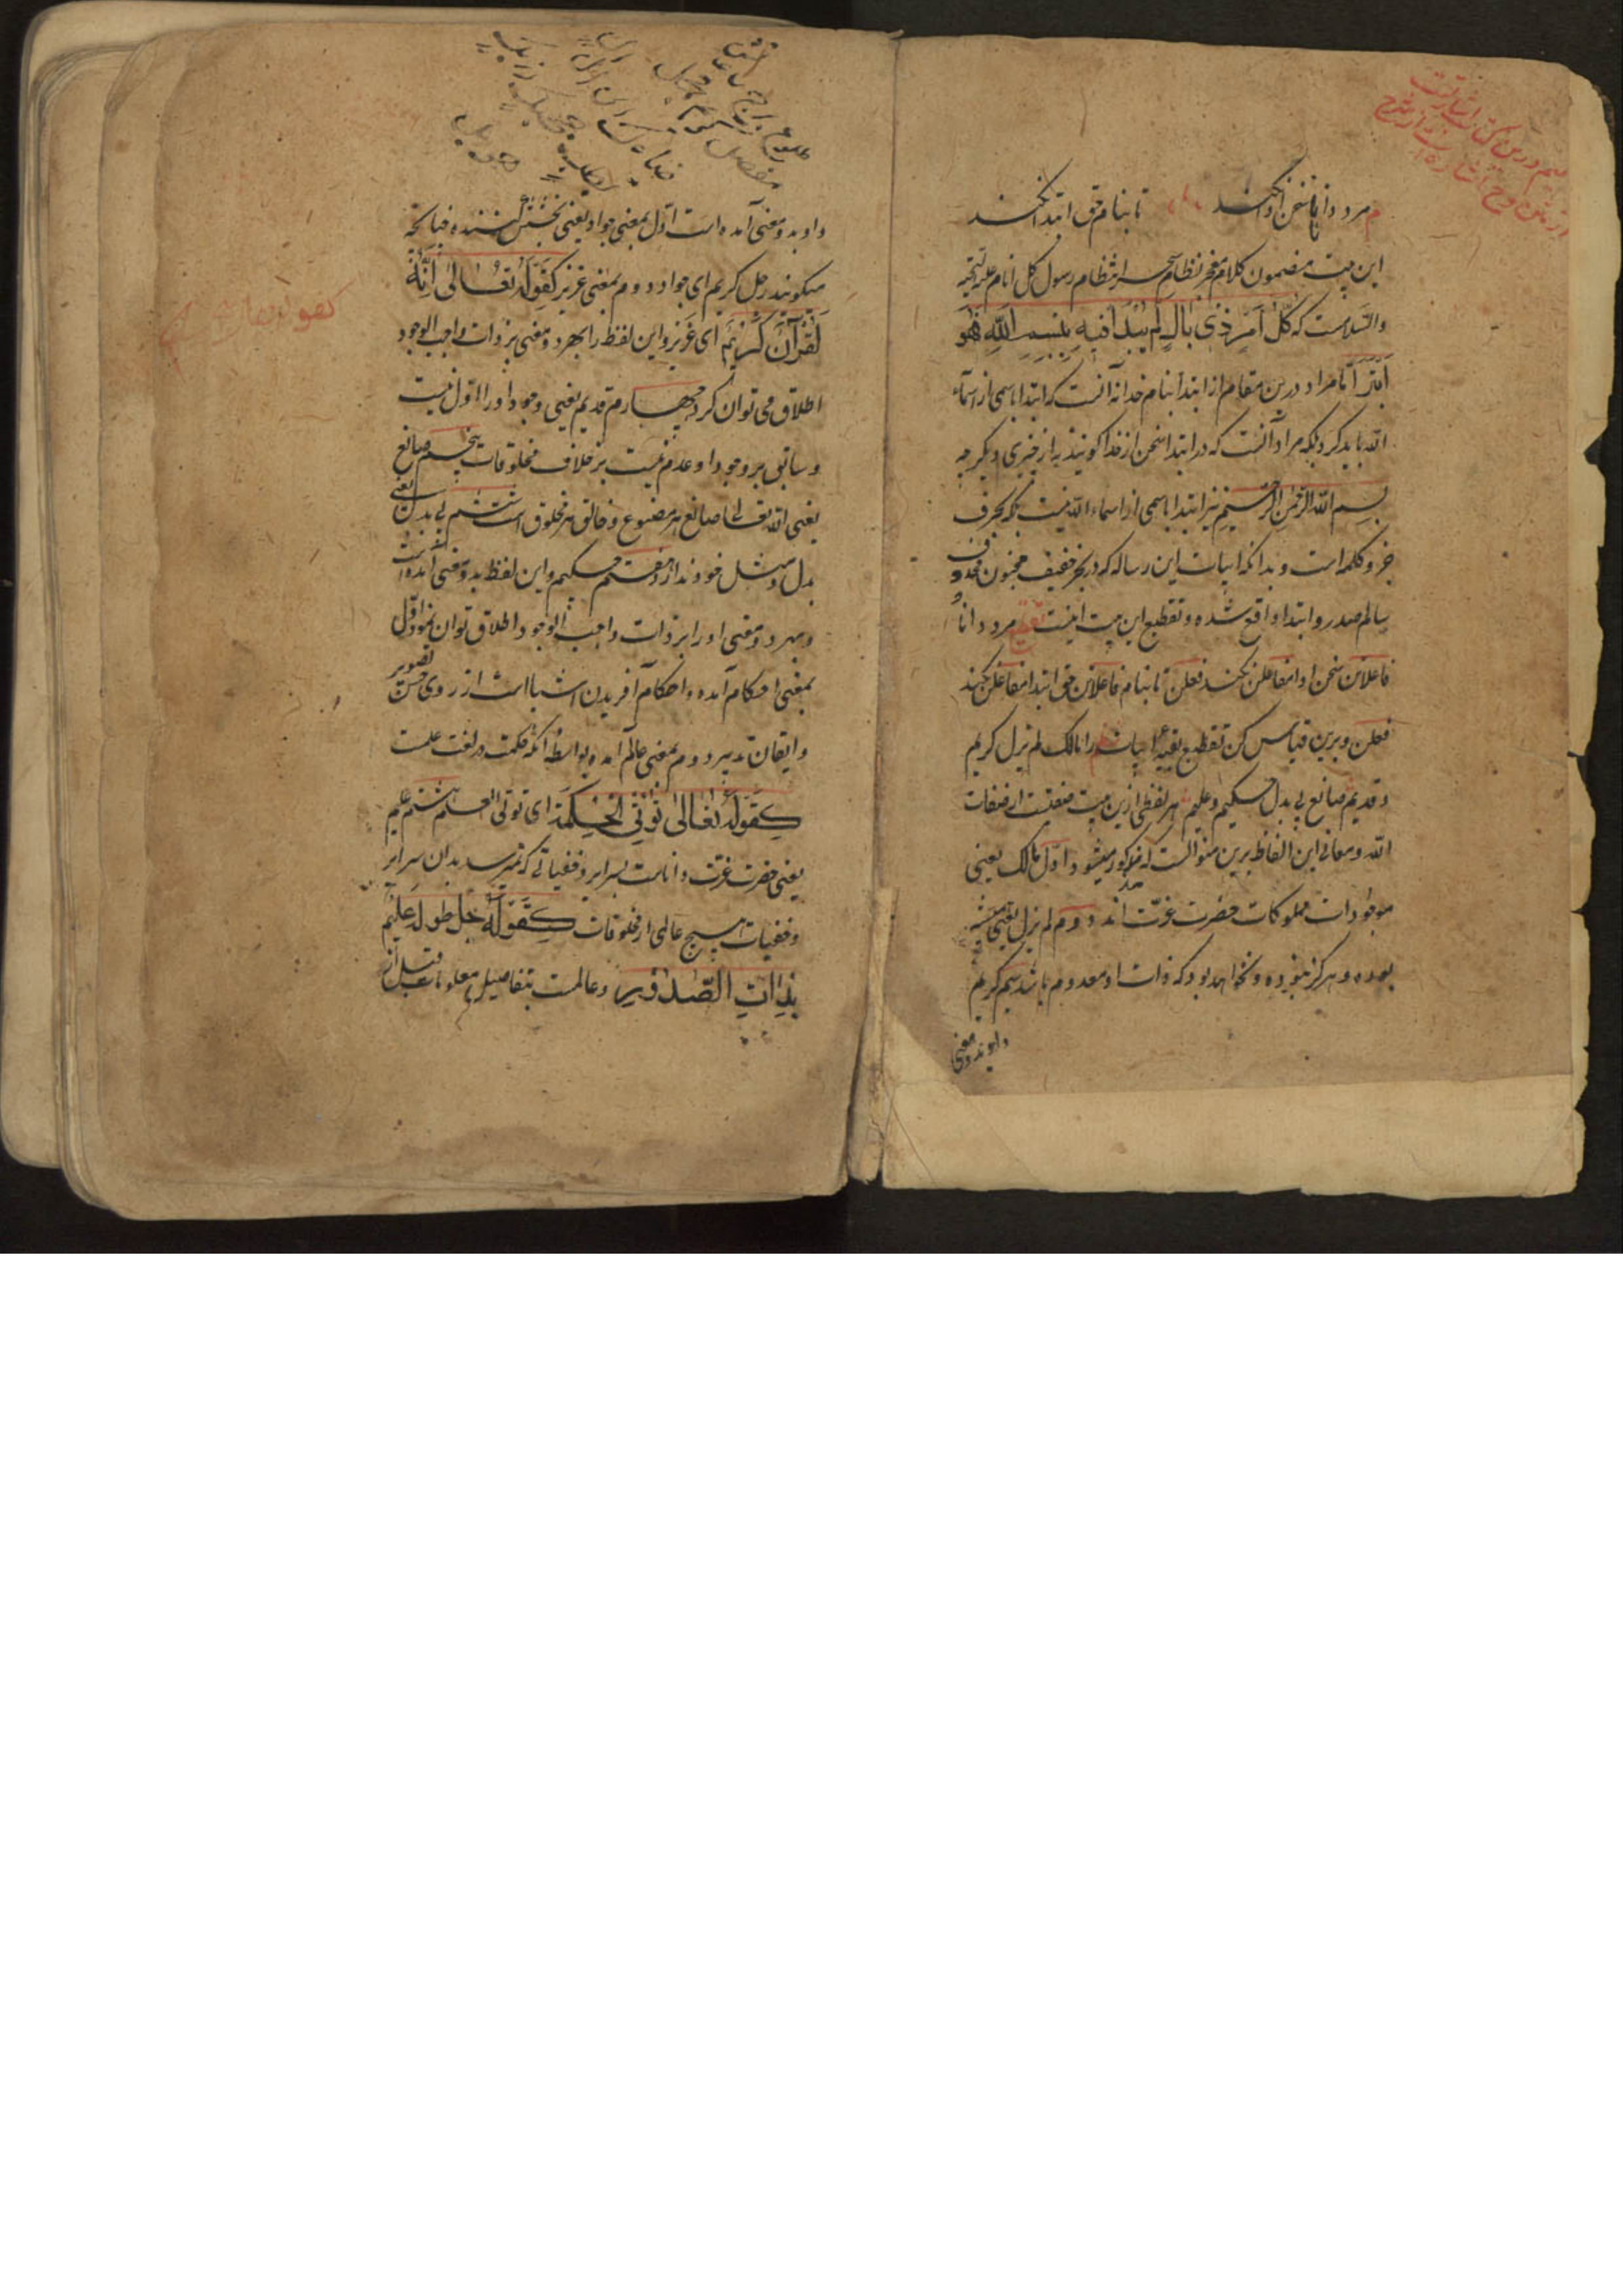 م مرد دانا سخن ادا نکند تا بنام حق ابتدا نکند
این بیت مضمون کلام معجز نظام سحر انتظام رسول کل انام علیه التحیه
والسلامست که کُلُّ اَمْرٍ ذِی بَالٍ لَمْ یُبْدَأْ فِیهِ بِبِسْمِ اللّٰهِ فَهُوَ
اَبْتَرُ اما مراد درین مقام از ابتدا بنام خدا نه آنست که ابتدا باسمی از اسماء
الله باید کرد بلکه مراد آنست که در ابتدا سخن از خدا گویند نه از چیزی دیگر چه
بسم الله الرحمن الرحیم نیز ابتدا باسمی از اسماء الله نیست بلکه بحرف
جزو کلمه است و بدانکه ابیات این رساله که در بحر خفیف مخبون محذوف
سالم صدر و ابتدا واقع شده و تقطیع این بیت اینست تقطیع مرد دانا
فاعلاتن سخن ادا مفاعلن نکند فعلن تا بنام فاعلاتن حق ابتدا مفاعلن نکند
فعلن و برین قیاس کن تقطیع بقیه ابیات را مالک لم یزل کریم
و قدیم صانع بی بدل حکیم و علیم هر لفظی ازین بیت صفتیست از صفات
الله و معانی این الفاظ برین منوالست که مذکور میشود اول مالک یعنی
موجودات مملوکات حضرت عزت اند دوم لم یزل یعنی همیشه
بوده و هرگز نبوده و نخواهد بود که ذات او معدوم باشد سیم کریم
و او بدو معنی
و او بدو معنی آمده است اول بمعنی جواد یعنی بخشش کننده چنانچه
میگویند رجل کریم ای جواد دوم بمعنی عزیز کَقَوْلِهِ تَعَالیٰ اِنَّهُ
لَقُرْآنٌ کَرِیْمٌ ای عزیز و این لفظ را بهر دو معنی بر ذات واجب الوجود
اطلاق می توان کرد چهارم قدیم یعنی وجود او را اول نیست
و سابق بر وجود او عدم نیست بر خلاف مخلوقات پنجم صانع
یعنی الله تعالی صانع هر مصنوع و خالق هر مخلوق است ششم بی بدل یعنی
بدل و مثل خود ندارد هفتم حکیم و این لفظ بدو معنی آمده است
و بهر دو معنی او را بر ذات واجب الوجود اطلاق توان نمود اول
بمعنی احکام آمده و احکام آفریدن اشیا است از روی حسن تصویر
و ایقان تدبیر دوم بمعنی عالم آمده بواسطه آنکه حکمت در لغت علمست
کَقَوْلِهِ تَعَالیٰ تُؤْتِی الْحِکْمَةَ ای تؤتی العلم هشتم علیم
یعنی حضرت عزت داناست بسرایر و خفیاتی که نمیرسد بدان سرایر
و خفیات هیچ عالمی از مخلوقات کَقَوْلِهِ جل طوله عَلِیْمٌ
بِذَاتِ الصُّدُوْرِ و عالمست بتفاصیل معلومات قبل از